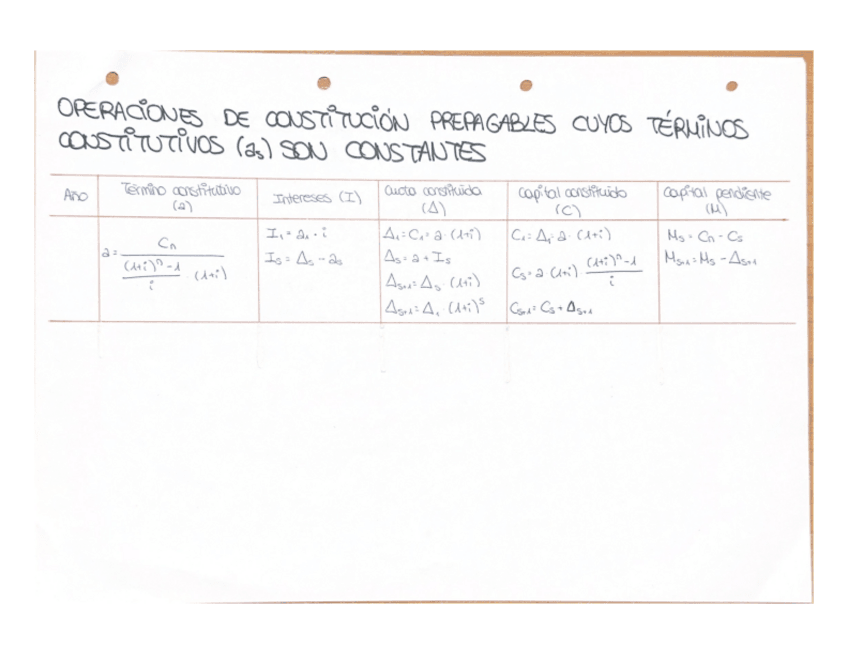 OPERACIONES DE CONSTITUCIÓN PREPAGABLES CUYOS TÉRMINOS
CONSTITUTIVOS (as) SON CONSTANTES
Año
Término constitutivo
(a)
Intereses (I)
Cuota constituida
(Δ)
Capital constituido
(C)
Capital pendiente
(M)
a = Cn / (((1+i)^n - 1) / i · (1+i))
I1 = a1 · i
Is = Δs - as
Δ1 = C1 = a · (1+i)
Δs = a + Is
Δs+1 = Δs · (1+i)
Δs+1 = Δ1 · (1+i)^s
C1 = Δ1 = a · (1+i)
Cs = a (1+i) · ((1+i)^n - 1) / i
Cs+1 = Cs + Δs+1
Ms = Cn - Cs
Ms+1 = Ms - Δs+1